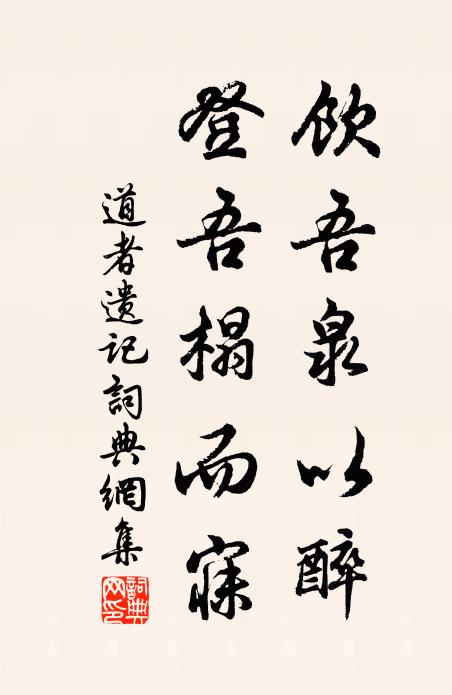 飲吾泉以醉
登吾榻而寐
道者遺記詞典網集
詞典網印